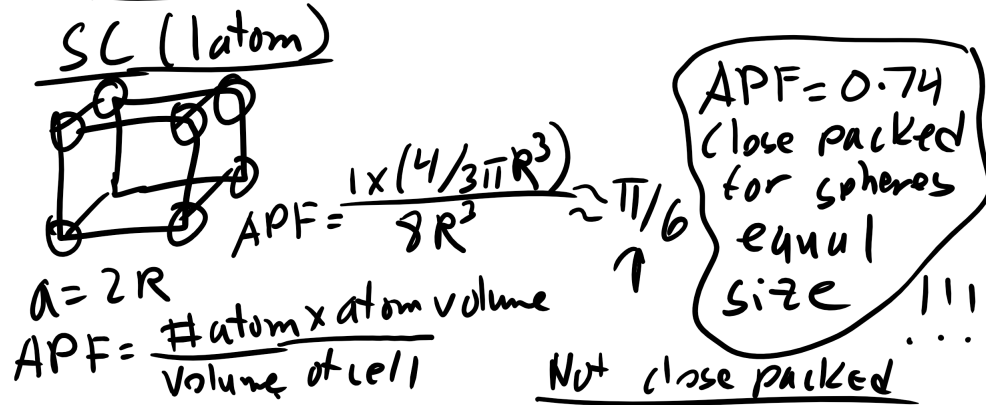 SC (1atom)
APF = 1x(4/3πR³) / 8R³ ≈ π/6
↑
a = 2R
APF = #atom x atom volume / volume of cell
APF = 0.74
Close packed
for spheres
equal
size !!!
Not close packed